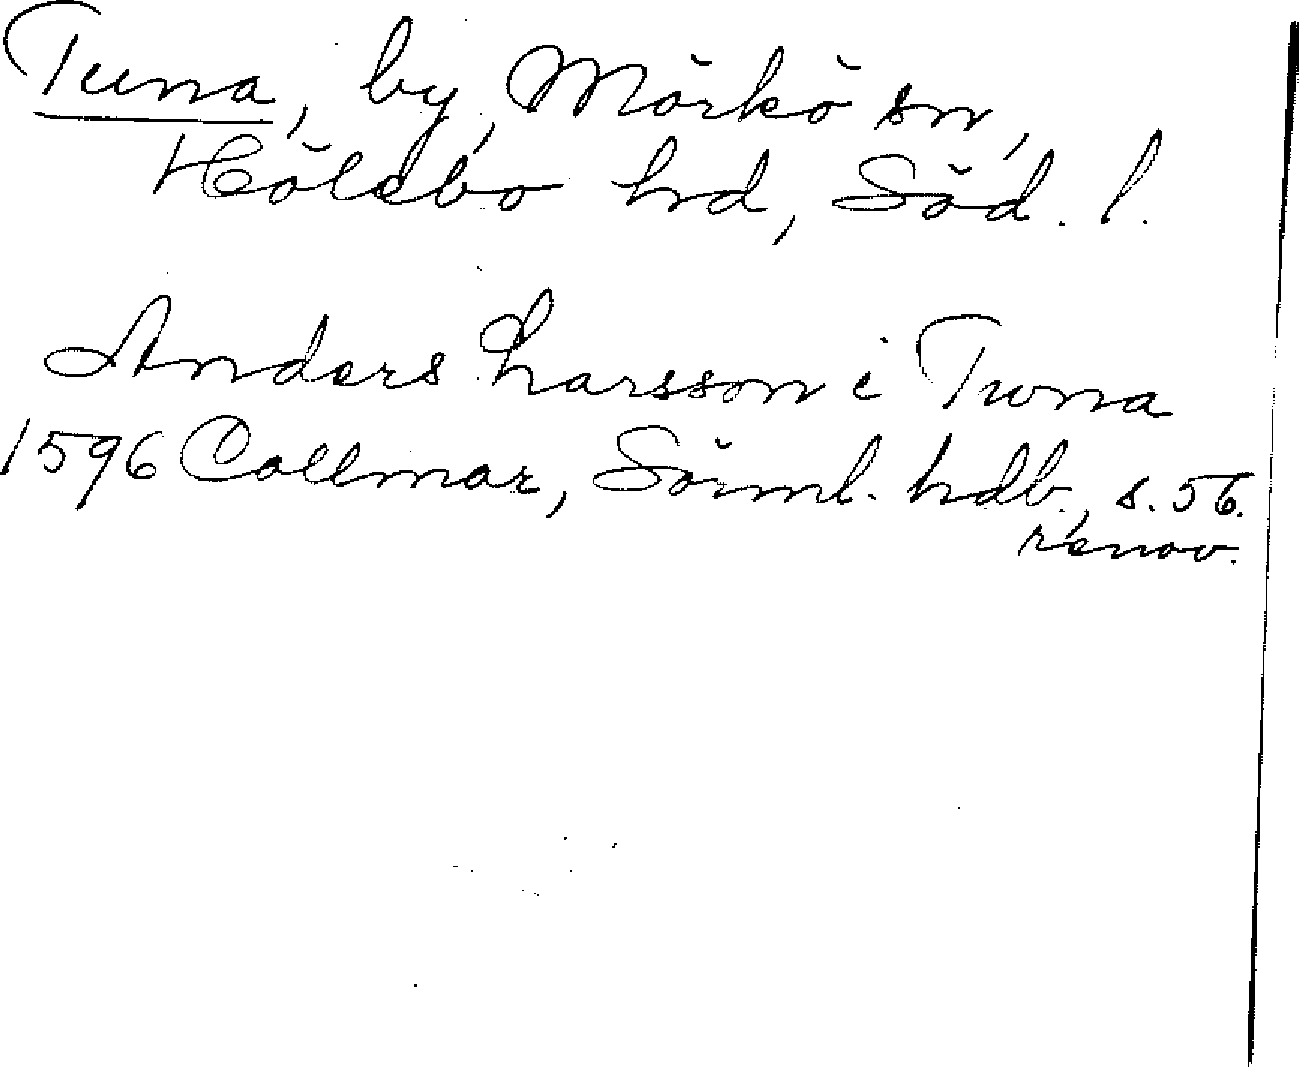 Tuna, by, Mörkö sn,
Hölebo hd, Söd. l.
Anders Larsson i Twna
1596 Collmar, Sörml. hdb., s. 56.
renov.